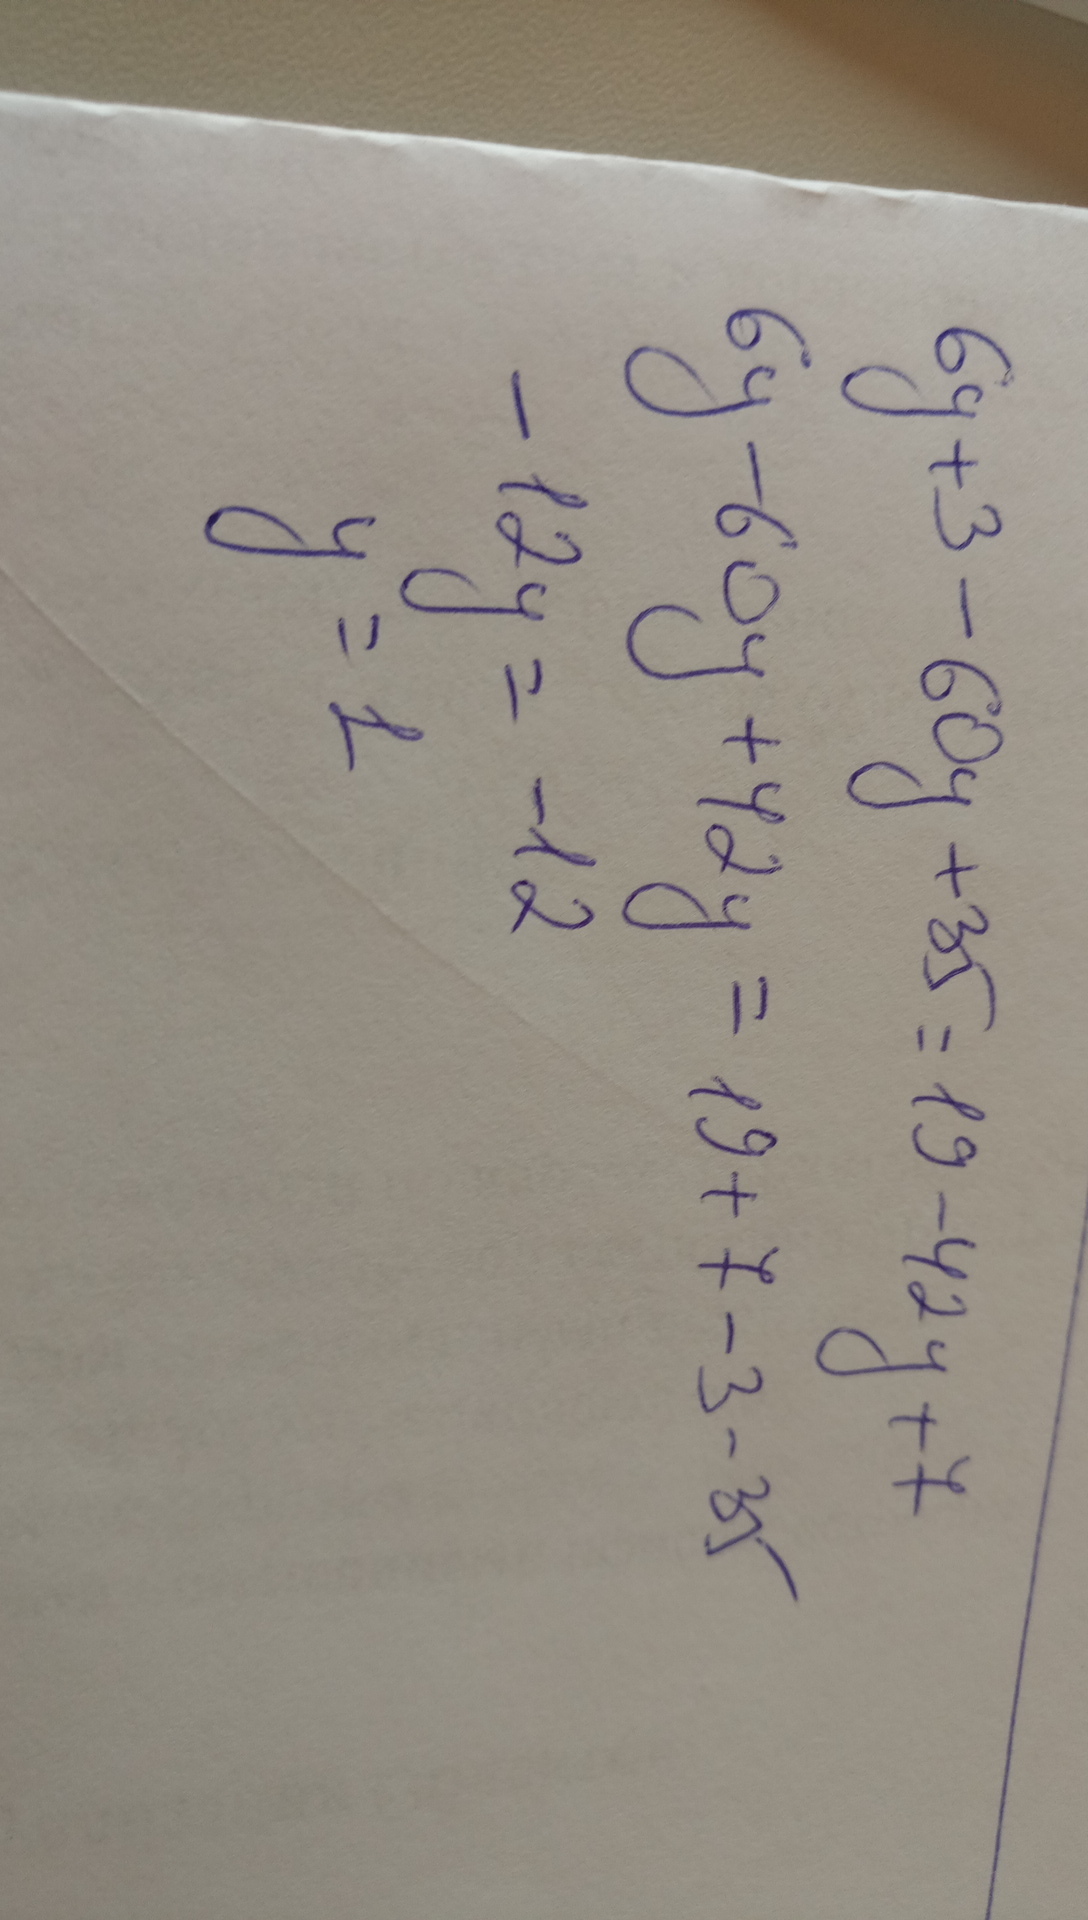 6y+3-60y+35=19-42y+7
6y-60y+42y=19+7-3-35
-12y=-12
y=1